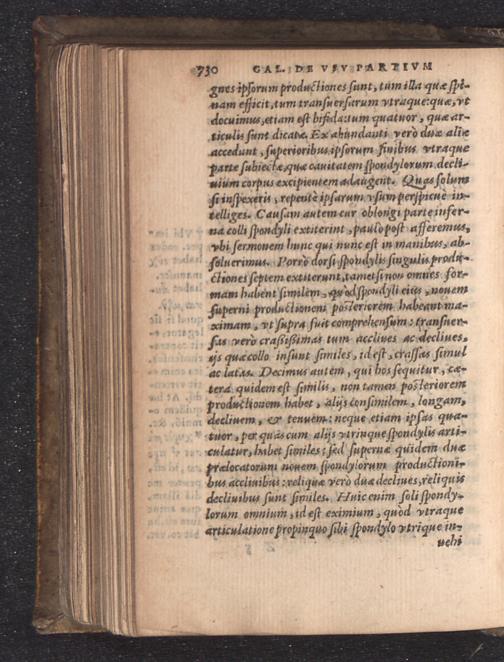 730 GAL. DE VSV PARTIVM
gnes ipsorum productiones sunt, tum illa quæ spi-
nam efficit, tum transuersarum vtraque: quæ, vt
docuimus, etiam est bifida: tum quatuor, quæ ar-
ticulis sunt dicatæ. Ex abundanti verò duæ aliæ
accedunt, superioribus ipsorum finibus vtraque
parte subiectæ, quæ cauitatem spondylorum decli-
uium corpus excipientem adaugent. Quas solum
si inspexeris, repentè ipsarum vsum perspicuè in-
telliges. Causam autem cur oblongi parte infer-
na colli spondyli extiterint, paulò post afferemus,
vbi sermonem hunc qui nunc est in manibus, ab-
soluerimus. Porrò dorsi spondylis singulis produ-
ctiones septem extiterunt, tametsi non omnes for-
mam habent similem, quòd spondyli eius, nouem
superni productionem posteriorem habeant ma-
ximam, vt supra fuit comprehensum: transuer-
sas verò crassissimas tum accliues ac decliues,
ijs quæ collo insunt similes, id est, crassas simul
ac latas. Decimus autem, qui hos sequitur, cæ-
tera quidem est similis, non tamen posteriorem
productionem habet, alijs consimilem, longam,
decliuem, & tenuem: neque etiam ipsas qua-
tuor, per quas cum alijs vtrinque spondylis arti-
culatur, habet similes: sed supernæ quidem duæ
prælocatorum nouem spondylorum productioni-
bus accliuibus: reliquæ verò duæ decliues, reliquis
decliuibus sunt similes. Huic enim soli spondy-
lorum omnium, id est eximium, quòd vtraque
articulatione propinquo sibi spondylo vtrique in-
uehi